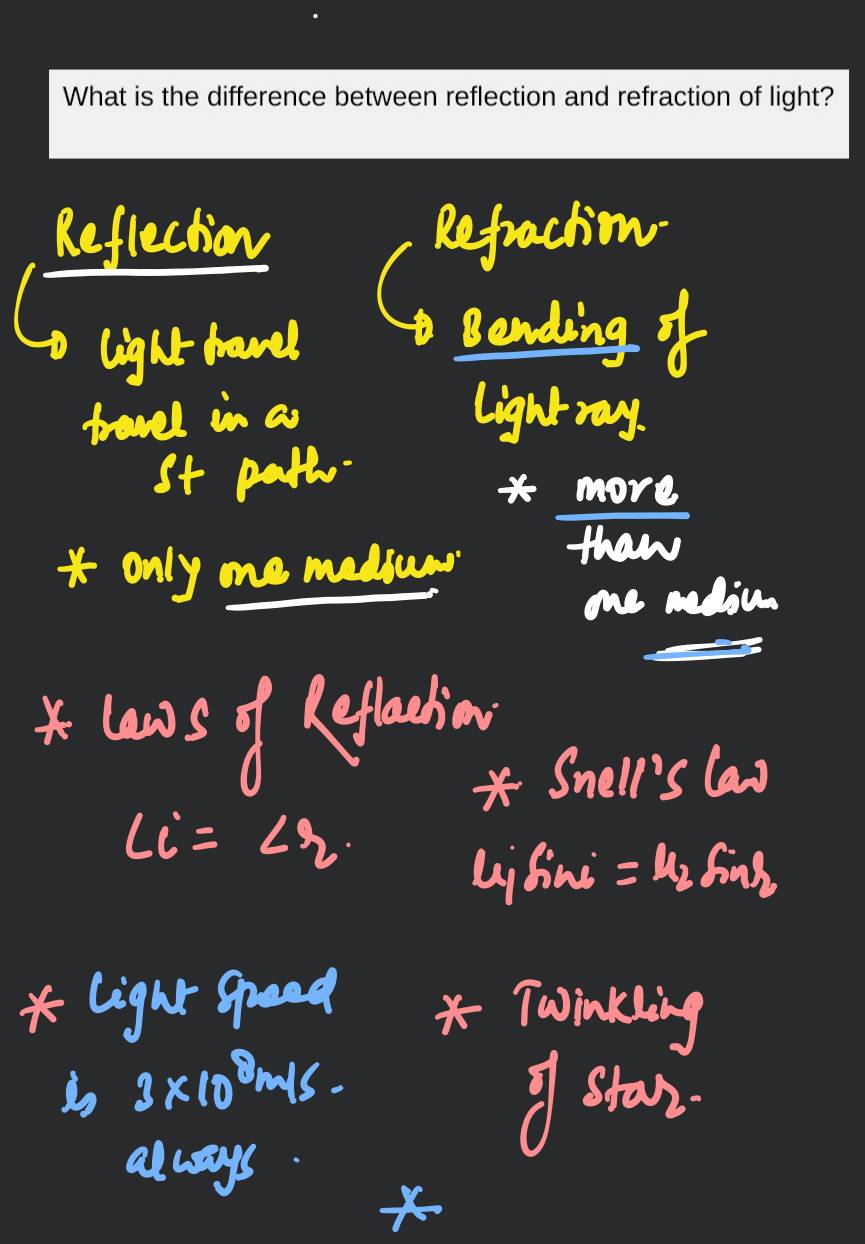 What is the difference between reflection and refraction of light?
Reflection
light travel
travel in a
St path.
* only one medium.
Refraction.
Bending of
light ray.
* more
than
one medium
* Laws of Reflaction
∠i = ∠r.
* Snell's Law
μ1 Sini = μ2 Sinr
* light Speed
is 3×10⁸m/s.
always.
* Twinkling
of Star.
*